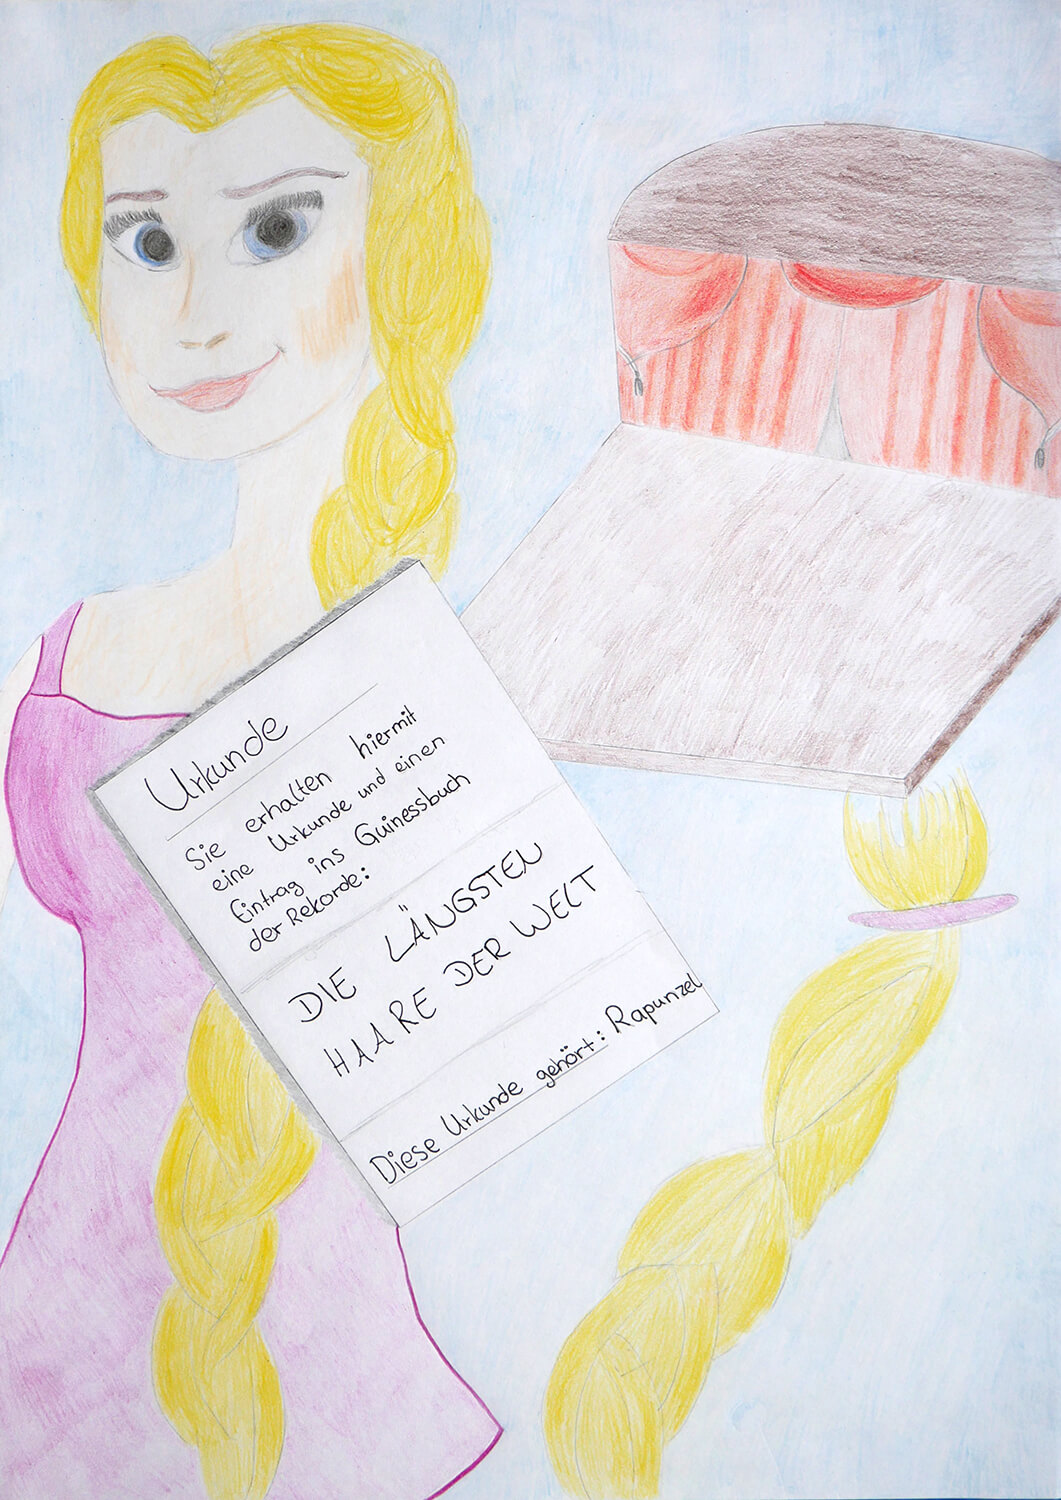 Urkunde
Sie erhalten hiermit
eine Urkunde und einen
Eintrag ins Guinessbuch
der Rekorde:
DIE LÄNGSTEN
HAARE DER WELT
Diese Urkunde gehört: Rapunzel